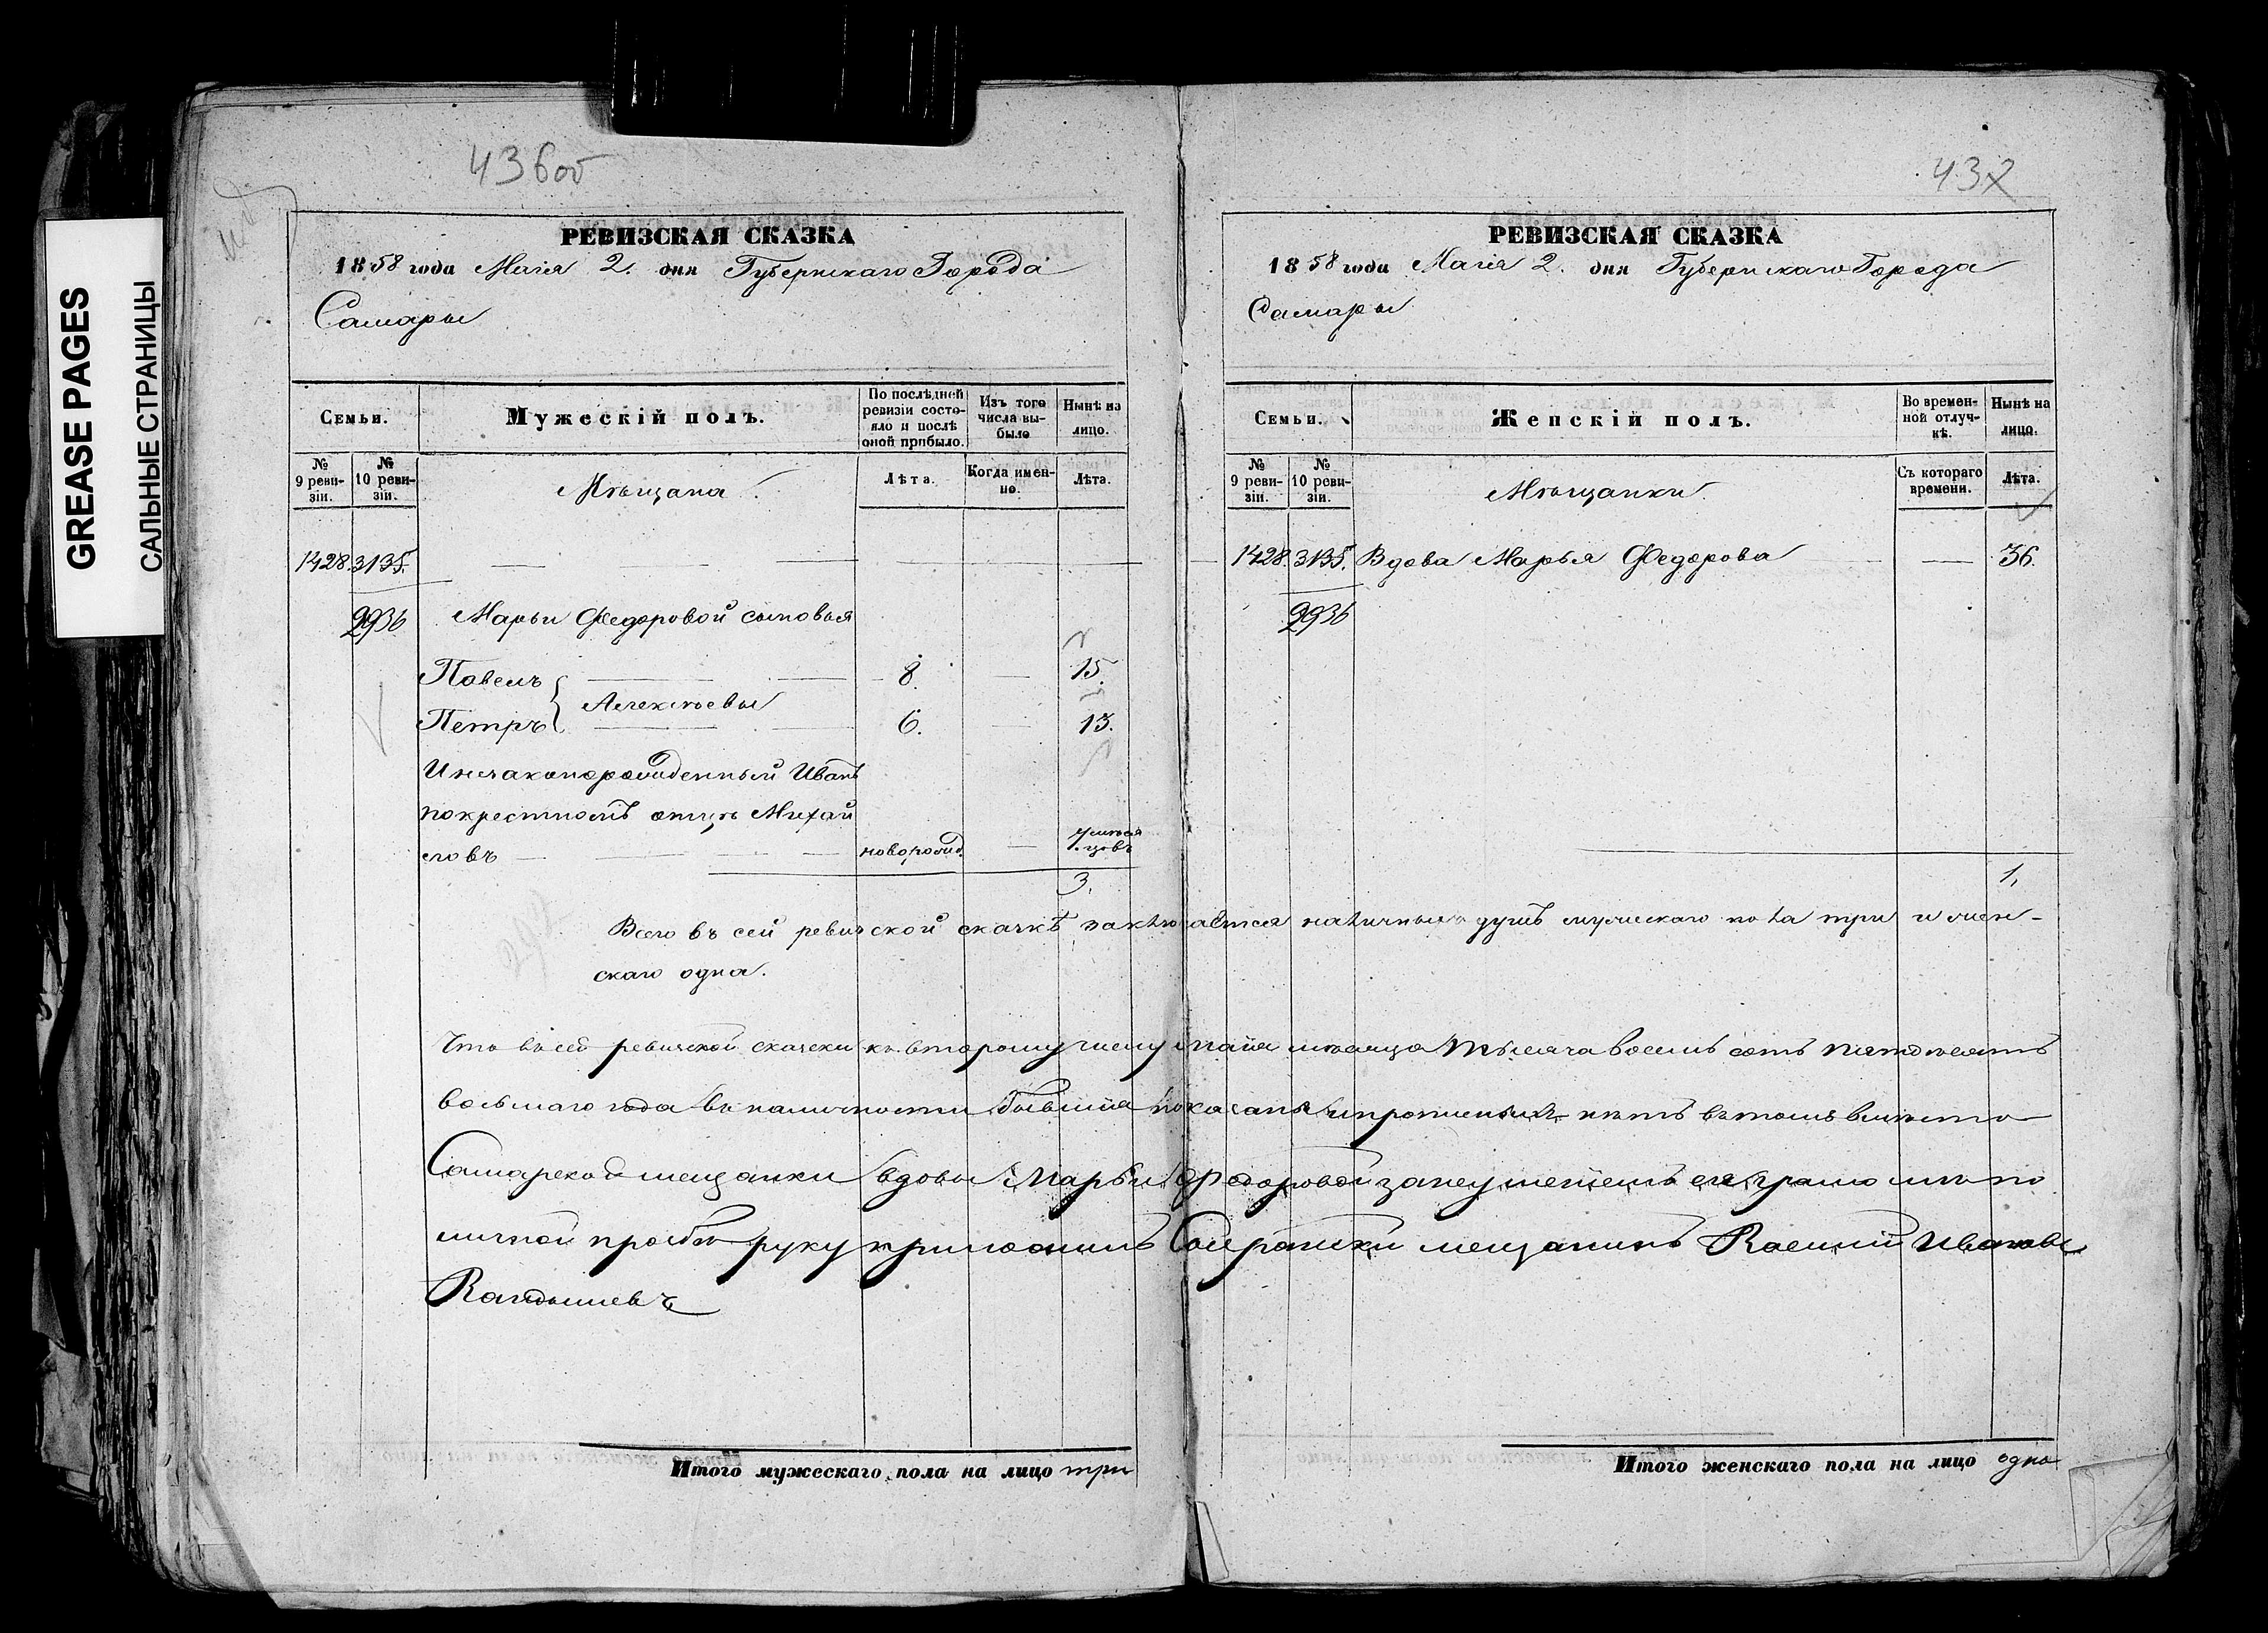 GREASE PAGES
САЛЬНЫЕ СТРАНИЦЫ
436об
РЕВИЗСКАЯ СКАЗКА
1858 года Маія 2. дня Губернскаго Города
Самары
Семьи.
Мужескій полъ.
По послѣдней ревизіи состояло и послѣ оной прибыло.
Изъ того числа выбыло
Нынѣ на лицо.
№ 9 ревизіи.
№ 10 ревизіи.
Мѣщана
Лѣта.
Когда именно.
Лѣта.
1428. 3135.
2936 Марьи Федоровой сыновья
Павелъ 8. 15.
Алексѣевы
Петръ 6. 13.
Инезаконорожденный Иванъ
покрестномъ отцѣ Михай
ловъ новорожд. 7 мѣся
цовъ
3.
Всего въ сей ревизской сказкѣ заключается наличныхъ душъ мужескаго пола три и жен-
скаго одна.
Что въ сей ревизской сказки ко второму числу маія мѣсяца тысяча восемь сотъ пятдесятъ
восьмаго года въ наличности бывшія показаны ипрописныхъ нѣтъ въ томъ вместо
Самарской мещанки вдовы Марьи Федоровой занеумениемъ ея грамоте по
личной прозбе руку приложилъ Самарский мещанинъ Василий Ивановъ
Итого мужескаго пола на лицо три
437
РЕВИЗСКАЯ СКАЗКА
1858 года Маія 2. дня Губернскаго Города
Самары
Семьи.
Женскій полъ.
Во временной отлучкѣ.
Нынѣ на лицо.
№ 9 ревизіи.
№ 10 ревизіи.
Мѣщанки
Съ котораго времени.
Лѣта.
1428. 3135. Вдова Марья Федорова 36.
2936
1.
Итого женскаго пола на лицо одна